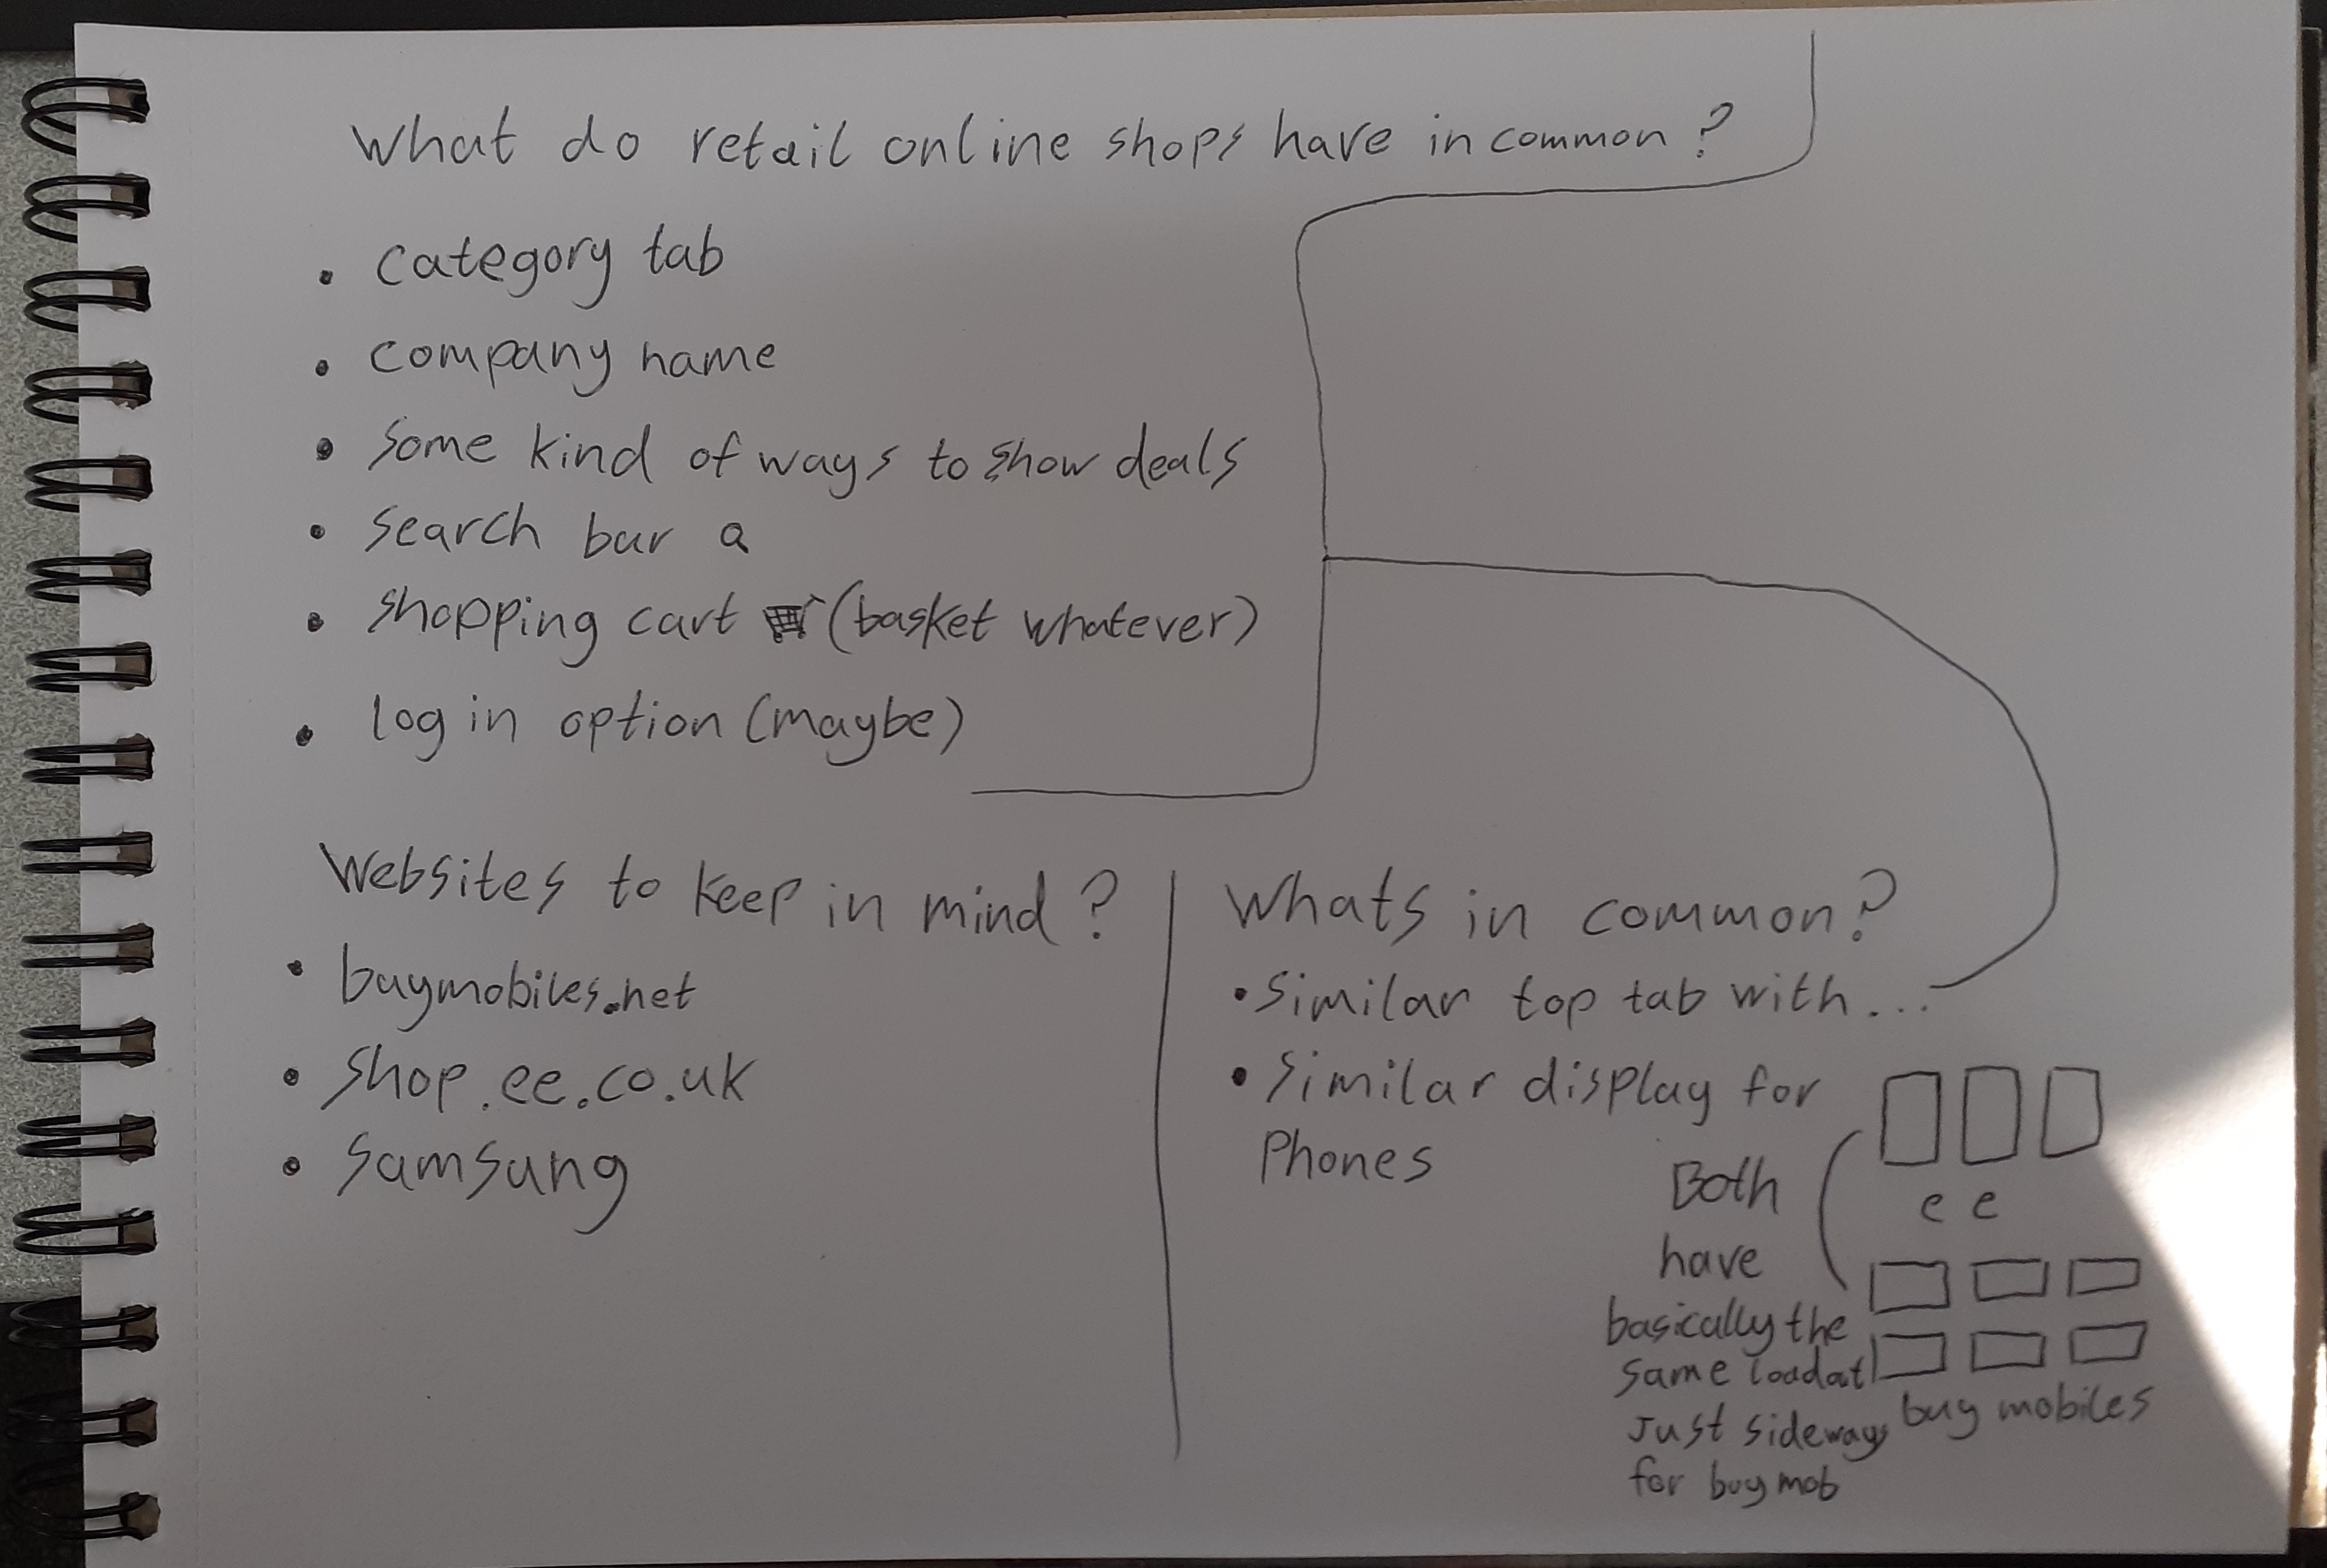 What do retail online shops have in common?
• category tab
• company name
• some kind of ways to show deals
• search bar
• shopping cart (basket whatever)
• log in option (maybe)
Websites to keep in mind?
• buymobiles.net
• shop.ee.co.uk
• samsung
Whats in common?
• similar top tab with...
• similar display for
Phones
ee
Both
have
basically the
same loadat
Just sideways
for buymob
buy mobiles